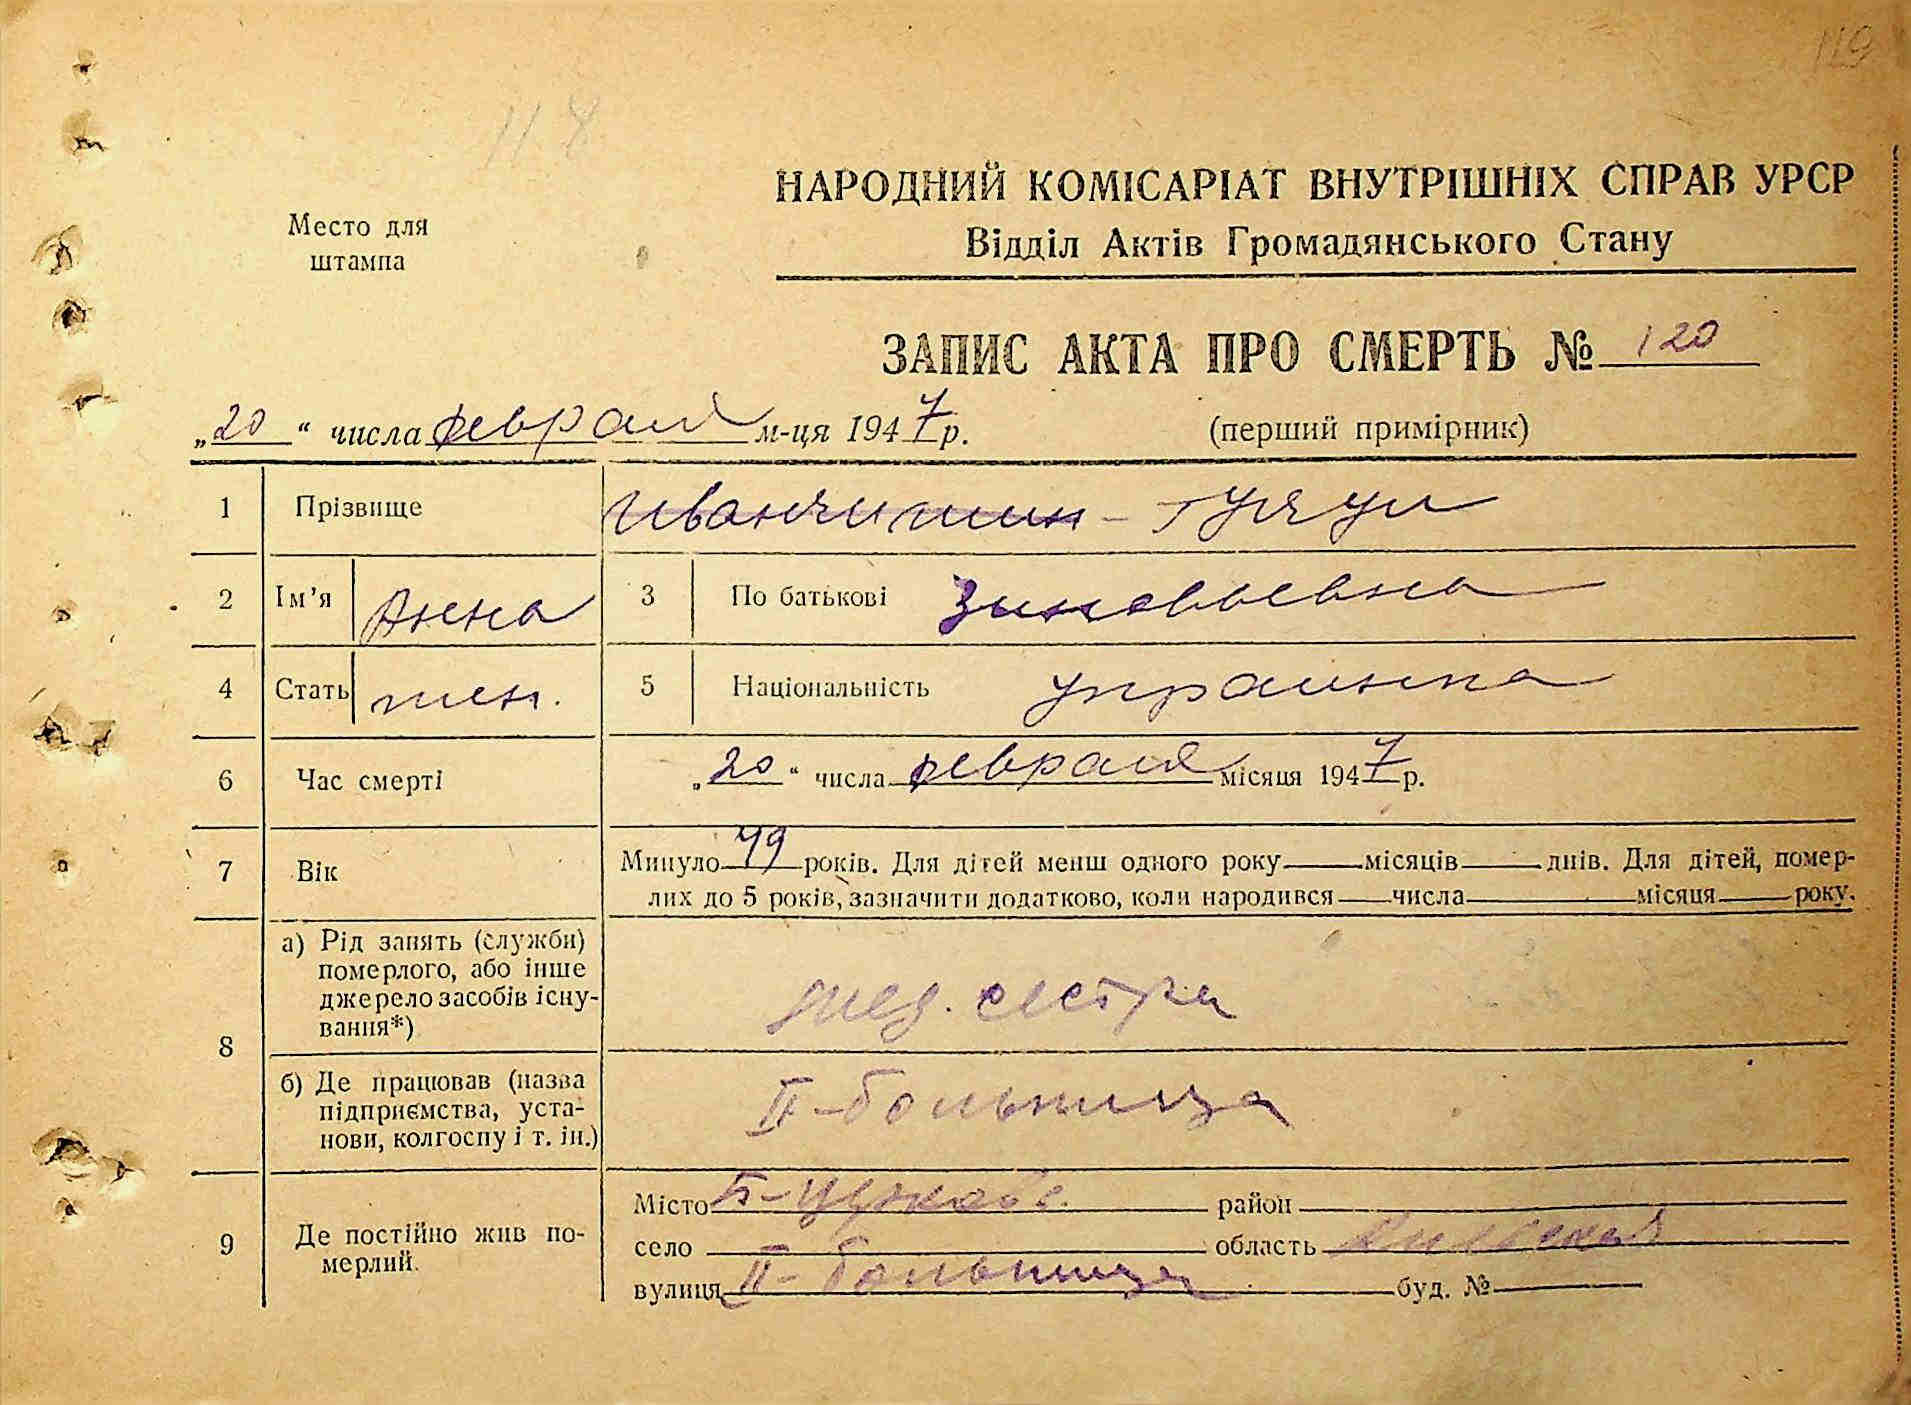 119
118
Место для
штампа
НАРОДНИЙ КОМІСАРІАТ ВНУТРІШНІХ СПРАВ УРСР
Відділ Актів Громадянського Стану
ЗАПИС АКТА ПРО СМЕРТЬ № 120
„20“ числа февраля м-ця 1947 р. (перший примірник)
1 Прізвище
2 Ім’я Анна 3 По батькові Зиновьевна
4 Стать жен. 5 Національність украинка
6 Час смерті „20“ числа февраля місяця 1947 р.
7 Вік Минуло 49 років. Для дітей менш одного року місяців днів. Для дітей, помер-
лих до 5 років, зазначити додатково, коли народився числа місяця року.
8 а) Рід занять (служби)
померлого, або інше
джерело засобів існу-
вання*)
мед. сестра
б) Де працював (назва
підприємства, уста-
нови, колгоспу і т. ін.)
II-больница
9 Де постійно жив по-
мерлий.
Місто Б-Церковь район
село область Киевская
вулиця II-больница буд. №